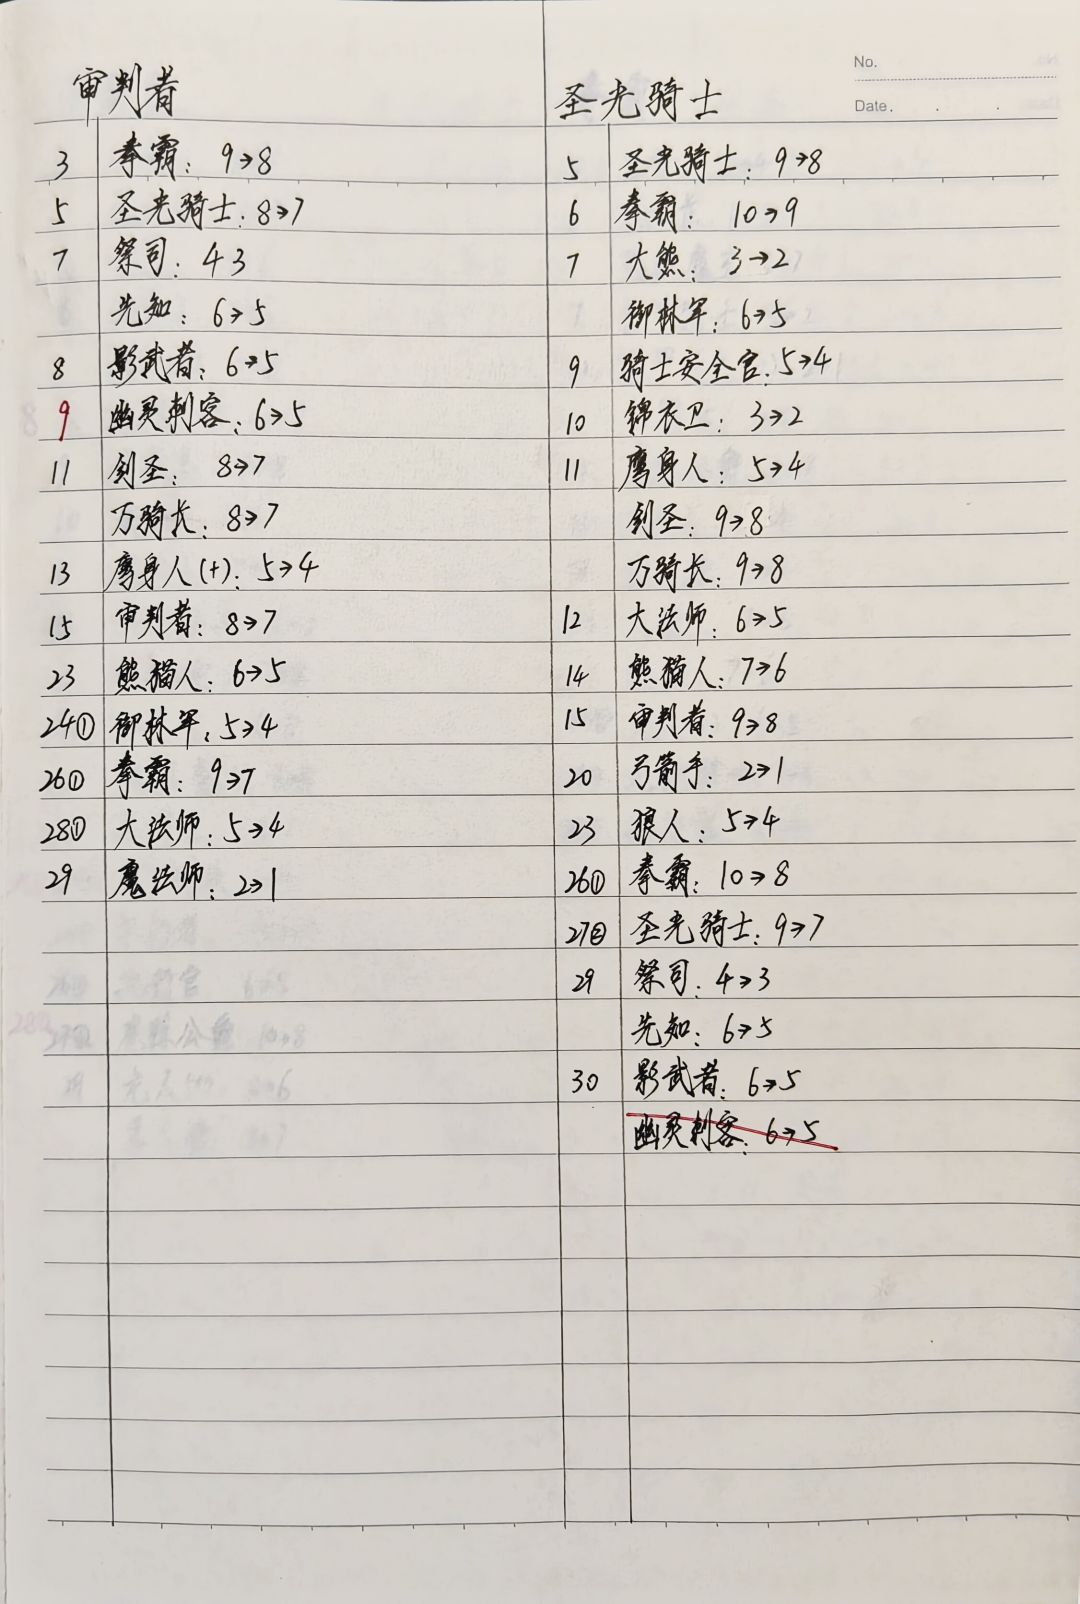 No.
Date.
审判者
3 拳霸: 9→8
5 圣光骑士: 8→7
7 祭司: 43
先知: 6→5
8 影武者: 6→5
9 幽灵刺客: 6→5
11 剑圣: 8→7
万骑长: 8→7
13 鹰身人(+): 5→4
15 审判者: 8→7
23 熊猫人: 6→5
24① 御林军: 5→4
26① 拳霸: 9→7
28① 大法师: 5→4
29 魔法师: 2→1
圣光骑士
5 圣光骑士: 9→8
6 拳霸: 10→9
7 大熊: 3→2
御林军: 6→5
9 骑士安全官: 5→4
10 锦衣卫: 3→2
11 鹰身人: 5→4
剑圣: 9→8
万骑长: 9→8
12 大法师: 6→5
14 熊猫人: 7→6
15 审判者: 9→8
20 弓箭手: 2→1
23 狼人: 5→4
26① 拳霸: 10→8
27② 圣光骑士: 9→7
29 祭司: 4→3
先知: 6→5
30 影武者: 6→5
幽灵刺客: 6→5